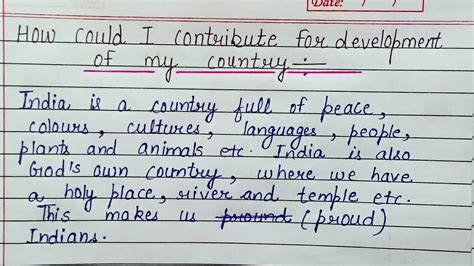 Date: / /
How could I contribute for development
of my country :-
India is a country full of peace,
colours, cultures, languages, people,
plants and animals etc. India is also
God's own country, where we have
a holy place, river and temple etc.
This makes us pround (proud)
Indians.